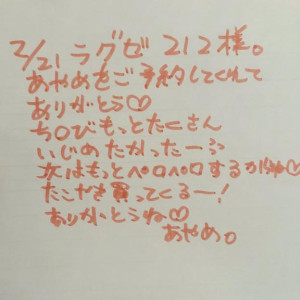 2/21 ラグゼ 212様。
あやめをご予約してくれて
ありがとう♡
ちOびもっとたくさん
いじめたかったーう
次はもっとペロペロするからね♡
たこやき買ってくるー!
ありがとうね♡
あやめ。